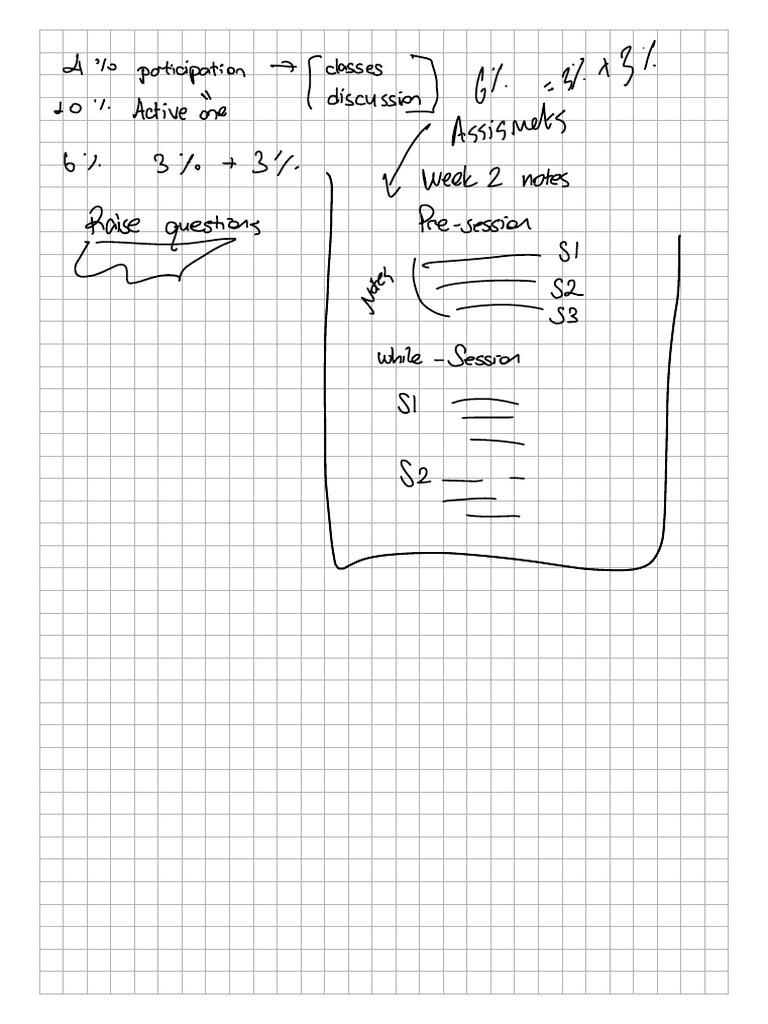 4 % participation → classes
discussion
10 % Active one
6 % 3 % + 3 %
Raise questions
6 % = 3 % + 3 %
Assigmets
Week 2 notes
Pre-session
Notes
S1
S2
S3
while - Session
S1
S2